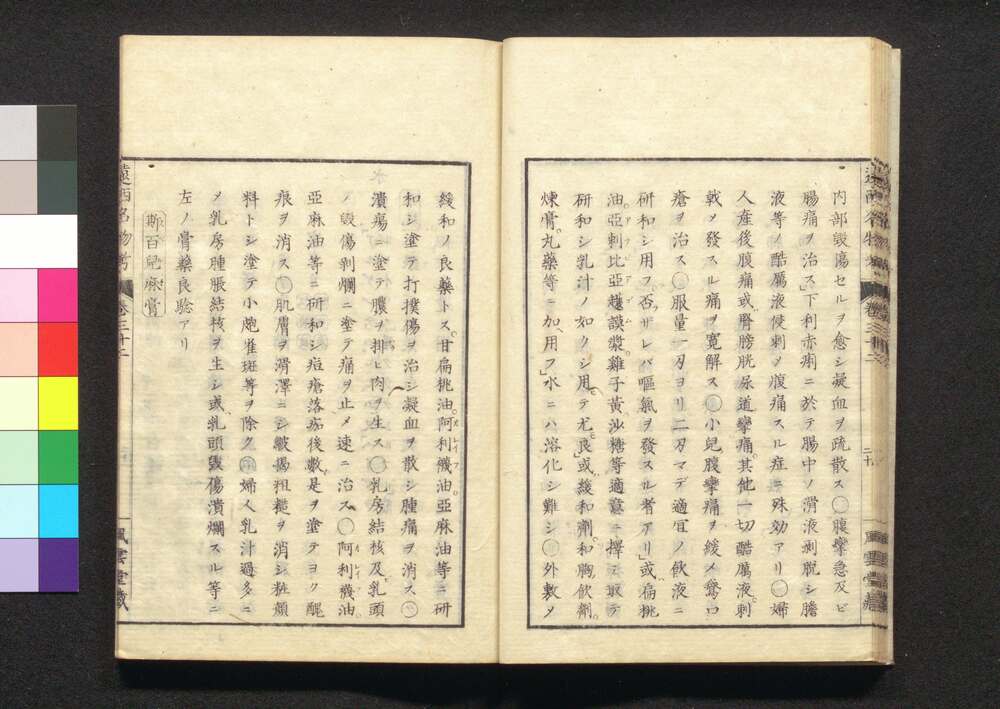 内部毀傷セルヲ愈シ凝血ヲ疏散ス○腹攣急及ビ
腸痛ヲ治ス下利赤痢ニ於テ腸中ノ滑液剥脱シ膽
液等ノ酷厲液侵刺メ腹痛スル症ニ殊効アリ○婦
人産後腹痛或腎膀胱尿道攣痛其他一切酷厲液刺
戟メ發スル痛ヲ寛解ス○小兒腹攣痛ヲ緩メ鵞口
瘡ヲ治ス○服量一刃ヨリ二刃マデ適宜ノ飲液ニ
研和シ用フ否サレバ嘔氣ヲ發スル者アリ或扁桃
油亞刺比亞護謨漿雞子黃沙糖等適意ニ擇ミ取テ
研和シ乳汁ノ如クシ用テ尤良或緩和劑和胸飲劑
煉膏丸藥等ニ加用フ水ニハ溶化シ難シ○外敷メ
緩和ノ良藥トス甘扁桃油阿利襪油亞麻油等ニ研
和シ塗テ打撲傷ヲ治シ凝血ヲ散シ腫痛ヲ消ス○
潰瘍ニ塗テ膿ヲ排ヒ肉ヲ生ス○乳房結核及乳頭
ノ毀傷剥爛ニ塗テ痛ヲ止メ速ニ治ス○阿利襪油
亞麻油等ニ研和シ痘瘡落痂後數是ヲ塗テヨク醜
痕ヲ消ス○肌膚ヲ滑澤ニシ皺 粗糙ヲ消シ粧顏
料トシ塗テ小皰雀斑等ヲ除ク○婦人乳汁過多ニ
メ乳房腫脹結核ヲ生シ或乳頭毀傷潰爛スル等ニ
左ノ膏藥良驗アリ
斯百兒麻膏
遠西名物考
卷三十二
風雲堂藏